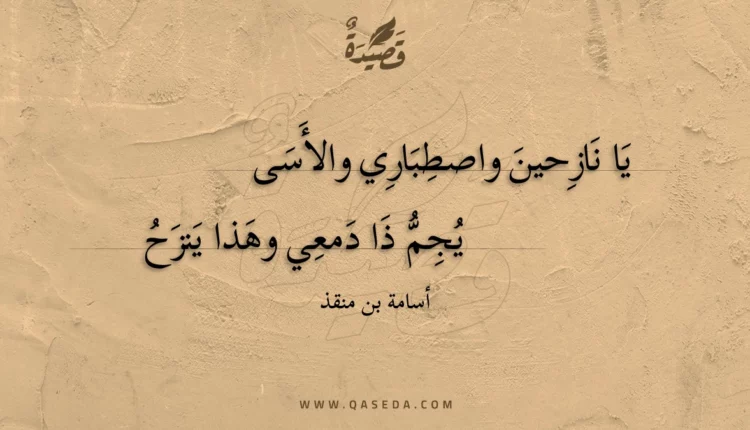 قَصِيدَةٌ
يَا نَازِحينَ واصطِبَارِي والأَسَى
يُجِمُّ ذَا دَمعِي وهَذا يَنزَحُ
أسامة بن منقذ
WWW.QASEDA.COM